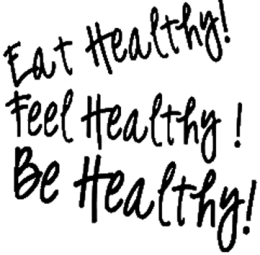 Eat Healthy!
Feel Healthy!
Be Healthy!